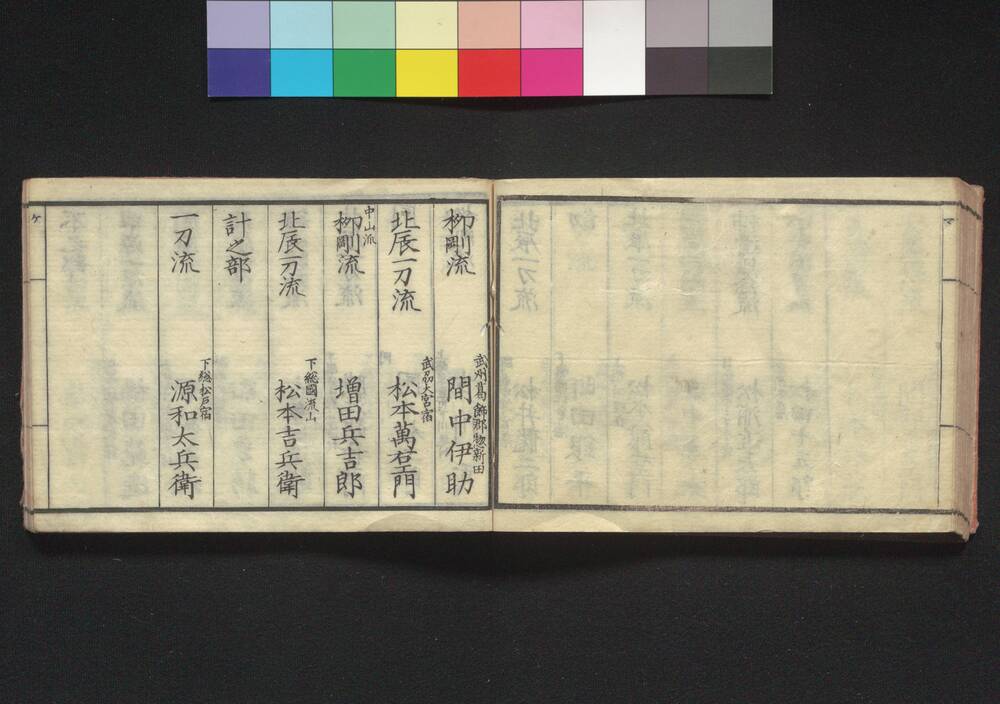 柳剛流
武州葛飾郡惣新田
間中伊助
北辰一刀流
武州大宮宿
松本萬右エ門
中山派
柳剛流
増田兵吉郎
北辰一刀流
下総國流山
松本吉兵衛
計之部
一刀流
下総松戸宿
源和太兵衛
ケ